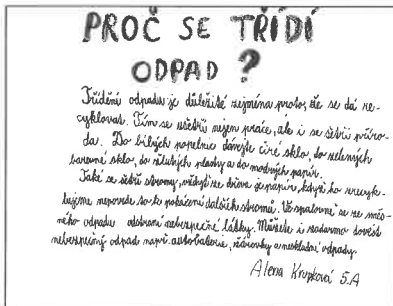 PROČ SE TŘÍDÍ
ODPAD?
Třídění odpadu je důležité zejména proto, že se dá re-
cyklovat. Tím se ušetří nejen práce, ale i se šetří příro-
da. Do bílých popelnic dávejte čiré sklo, do zelených
barevné sklo, do žlutých plasty a do modrých papír.
Také se šetří stromy, vždyť ze dřeva je papír, když ho recyk-
lujeme nepovede to k pokácení dalších stromů. Ve spalovně se ze směs-
ného odpadu odstraní nebezpečné látky. Můžete i zadarmo dovést
nebezpečný odpad např. autobaterie, žárovky a neskladné odpady.
Alena Krupková 5.A